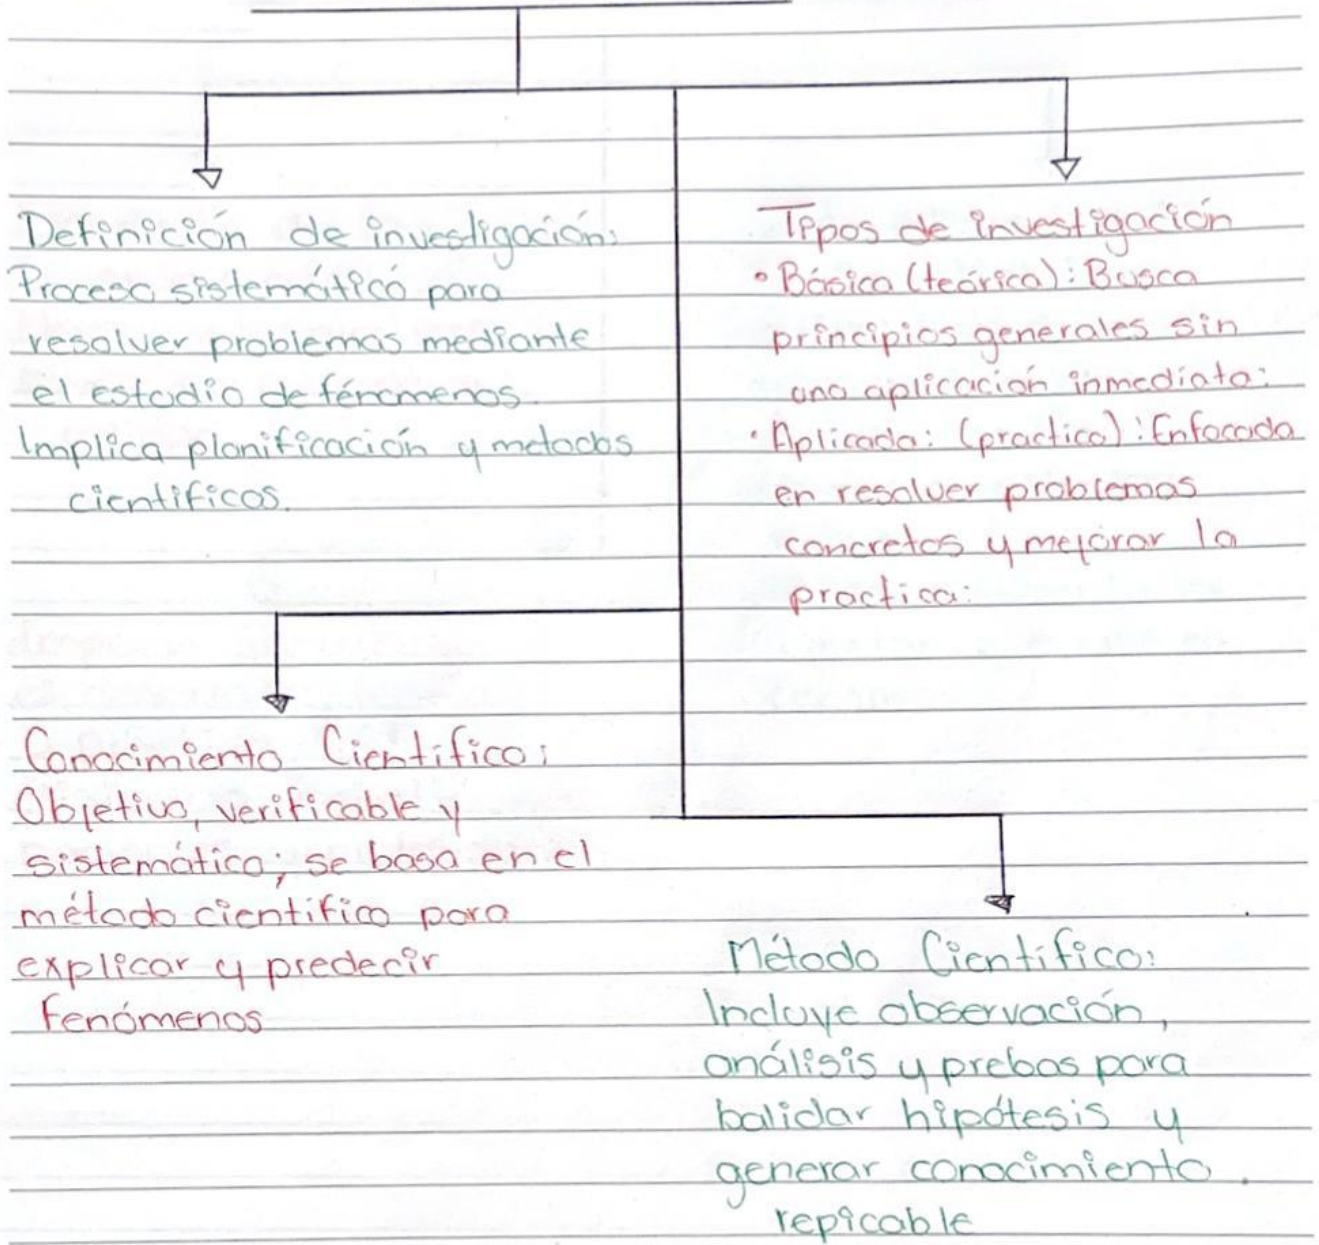 Definición de investigación:
Proceso sistemático para
resolver problemas mediante
el estudio de fénomenos.
Implica planificación y metodos
científicos.
Tipos de investigación
• Básica (teórica): Busca
principios generales sin
una aplicación inmediata:
• Aplicada: (practica): Enfocada
en resolver problemas
concretos y mejorar la
practica:
Conocimiento Científico:
Objetivo, verificable y
sistemático, se basa en el
método científico para
explicar y predecir
fenómenos
Método Científico:
Incluye observación,
análisis y prebas para
balidar hipótesis y
generar conocimiento.
repicable